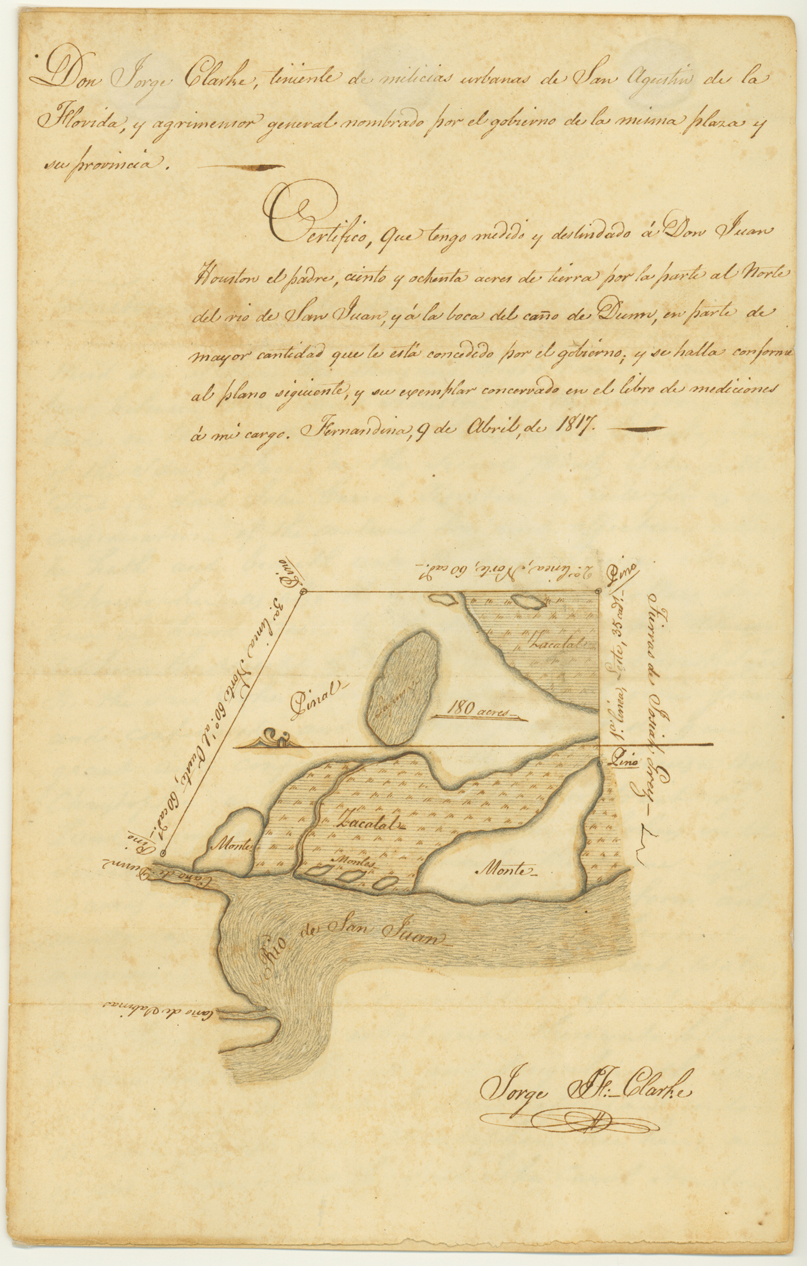 Don Jorge Clarke, teniente de milicias urbanas de San Agustin de la
Florida, y agrimensor general nombrado por el gobierno de la misma plaza y
su provincia.
Certifico, que tengo medido y deslindado á Don Juan
Houston el padre, ciento y ochenta acres de tierra por la parte al Norte
del rio de San Juan, y á la boca del caño de Dunn, en parte de
mayor cantidad que le está concedido por el gobierno; y se halla conforme
al plano siguiente, y su exemplar concervado en el libro de mediciones
á mi cargo. Fernandina, 9 de Abril, de 1817.
Pino
2ª linea, Norte, 60 cads.
Pino
3ª linea Norte 60º al Oeste, 60 cads.
1ª linea, Este, 35 cads.
Tierras de Josiah Grey
Zacatal
Pinal
180 acres
Pino
Pino
Zacatal
Monte
Montes
Monte
Caño de Dunn
Rio de San Juan
Caño de
Jorge J. F. Clarke